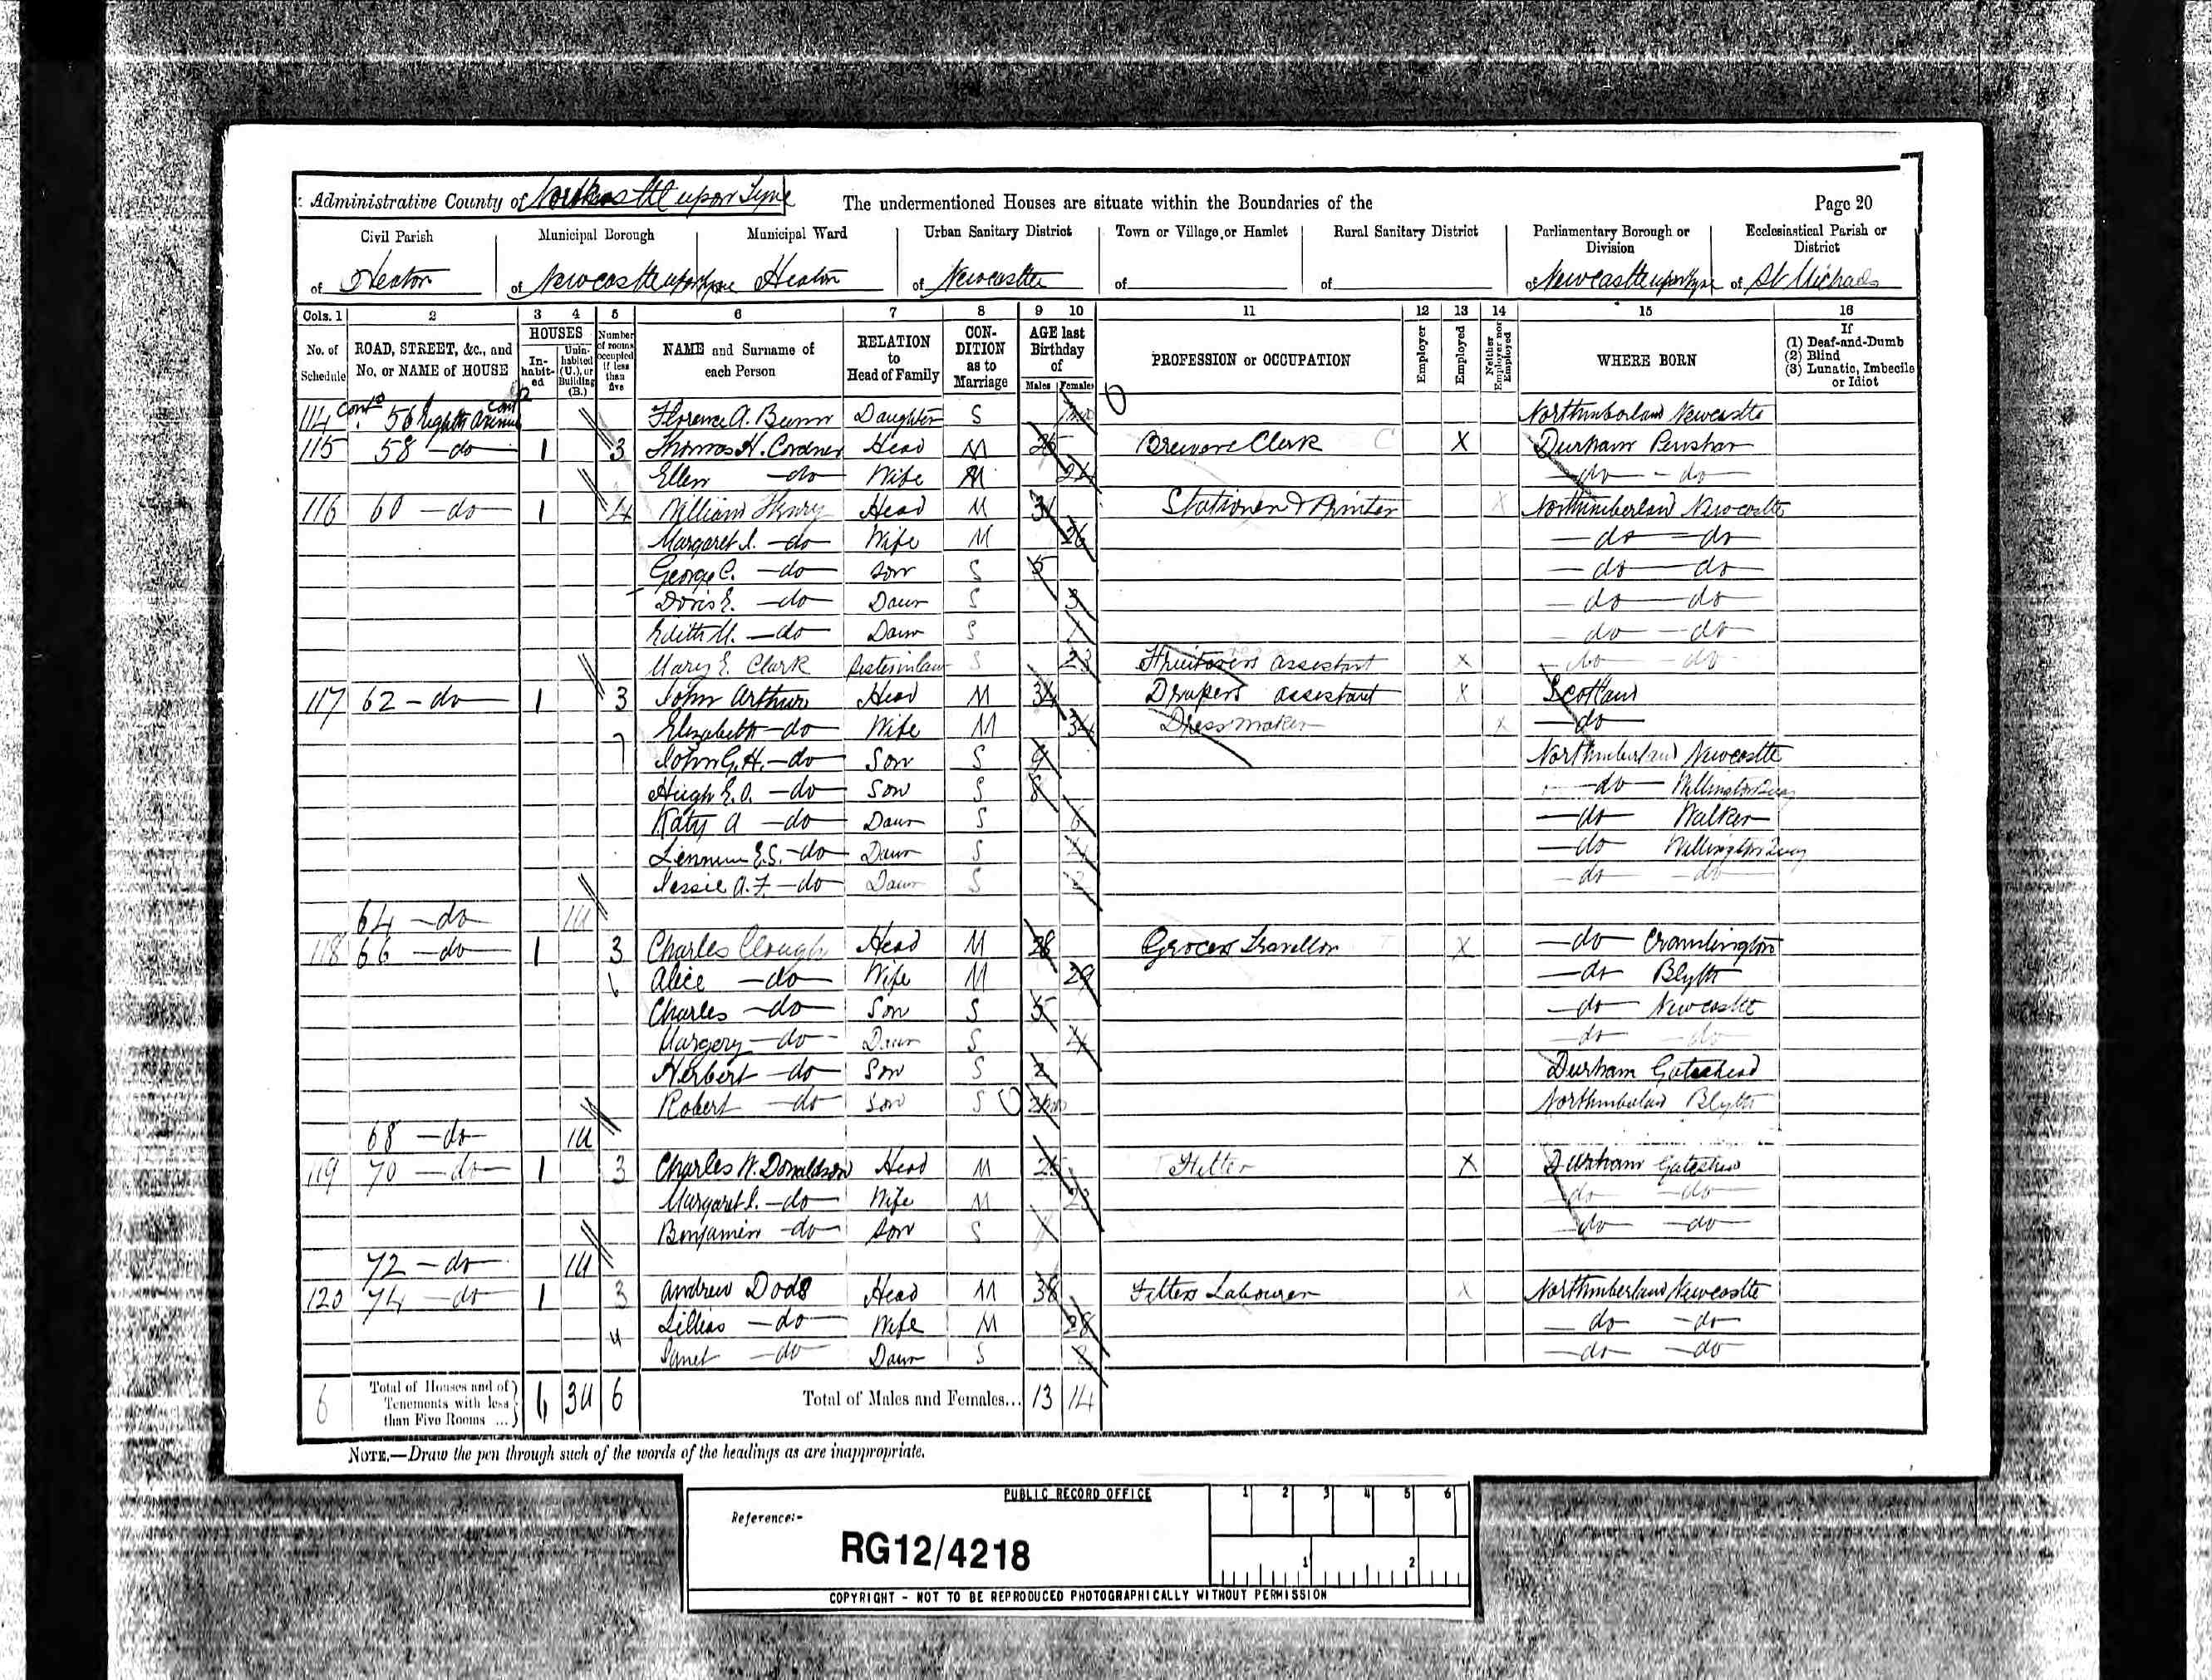 Administrative County of Newcastle upon Tyne The undermentioned Houses are situate within the Boundaries of the Page 20
Civil Parish Municipal Borough Municipal Ward Urban Sanitary District Town or Village, or Hamlet Rural Sanitary District Parliamentary Borough or Division Ecclesiastical Parish or District
of Heaton of Newcastle upon Tyne Heaton of Newcastle of of of Newcastle upon Tyne of St Michaels
Cols. 1 2 3 4 5 6 7 8 9 10 11 12 13 14 15 16
No. of Schedule ROAD, STREET, &c., and No. or NAME of HOUSE HOUSES Inhabited Uninhabited (U.), or Building (B.) Number of rooms occupied if less than five NAME and Surname of each Person RELATION to Head of Family CONDITION as to Marriage AGE last Birthday of Males Females PROFESSION or OCCUPATION Employer Employed Neither Employer nor Employed WHERE BORN If (1) Deaf-and-Dumb (2) Blind (3) Lunatic, Imbecile or Idiot
114 cont 56 Eighth Avenue cont Florence A. Bunn Daughter S Northumberland Newcastle
115 58 do 1 3 Thomas H. Cordner Head M 25 Clerk X Durham Penshar
Ellen do Wife M 24 do do
116 60 do 1 4 William Henry Head M 31 Stationer & Printer X Northumberland Newcastle
Margaret I. do Wife M 26 do do
George C. do Son S 5 do do
Doris E. do Daur S 3 do do
Edith M. do Daur S 1 do do
Mary E. Clark Sister in law S 23 Fruiterers assistant X do do
117 62 do 1 3 John Arthur Head M 34 Drapers assistant X Scotland
Elizabeth do Wife M 34 Dressmaker X do
7 John G. H. do Son S 9 Northumberland Newcastle
Hugh E. A. do Son S 8 do Willington Quay
Katy A do Daur S 6 do Walker
E.S. do Daur S 4 do Willington Quay
Jessie A. F. do Daur S 2 do do
64 do 1U
118 66 do 1 3 Charles Clough Head M 28 Grocers Traveller X do Cramlington
6 Alice do Wife M 29 do Blyth
Charles do Son S 5 do Newcastle
Margery do Daur S 4 do do
Herbert do Son S 2 Durham Gateshead
Robert do Son S 2m Northumberland Blyth
68 do 1U
119 70 do 1 3 Charles W. Donaldson Head M Fitter X Durham Gateshead
Margaret I. do Wife M 23 do do
Benjamin do Son S 1 do do
72 do 1U
120 74 do 1 3 Andrew Dods Head M 38 Fitters Labourer X Northumberland Newcastle
4 Lillias do Wife M 28 do do
Janet do Daur S 8 do do
6 Total of Houses and of Tenements with less than Five Rooms ... 6 3U 6 Total of Males and Females... 13 14
NOTE.—Draw the pen through such of the words of the headings as are inappropriate.
PUBLIC RECORD OFFICE 1 2 3 4 5 6
Reference:-
RG12/4218
1 2
COPYRIGHT - NOT TO BE REPRODUCED PHOTOGRAPHICALLY WITHOUT PERMISSION